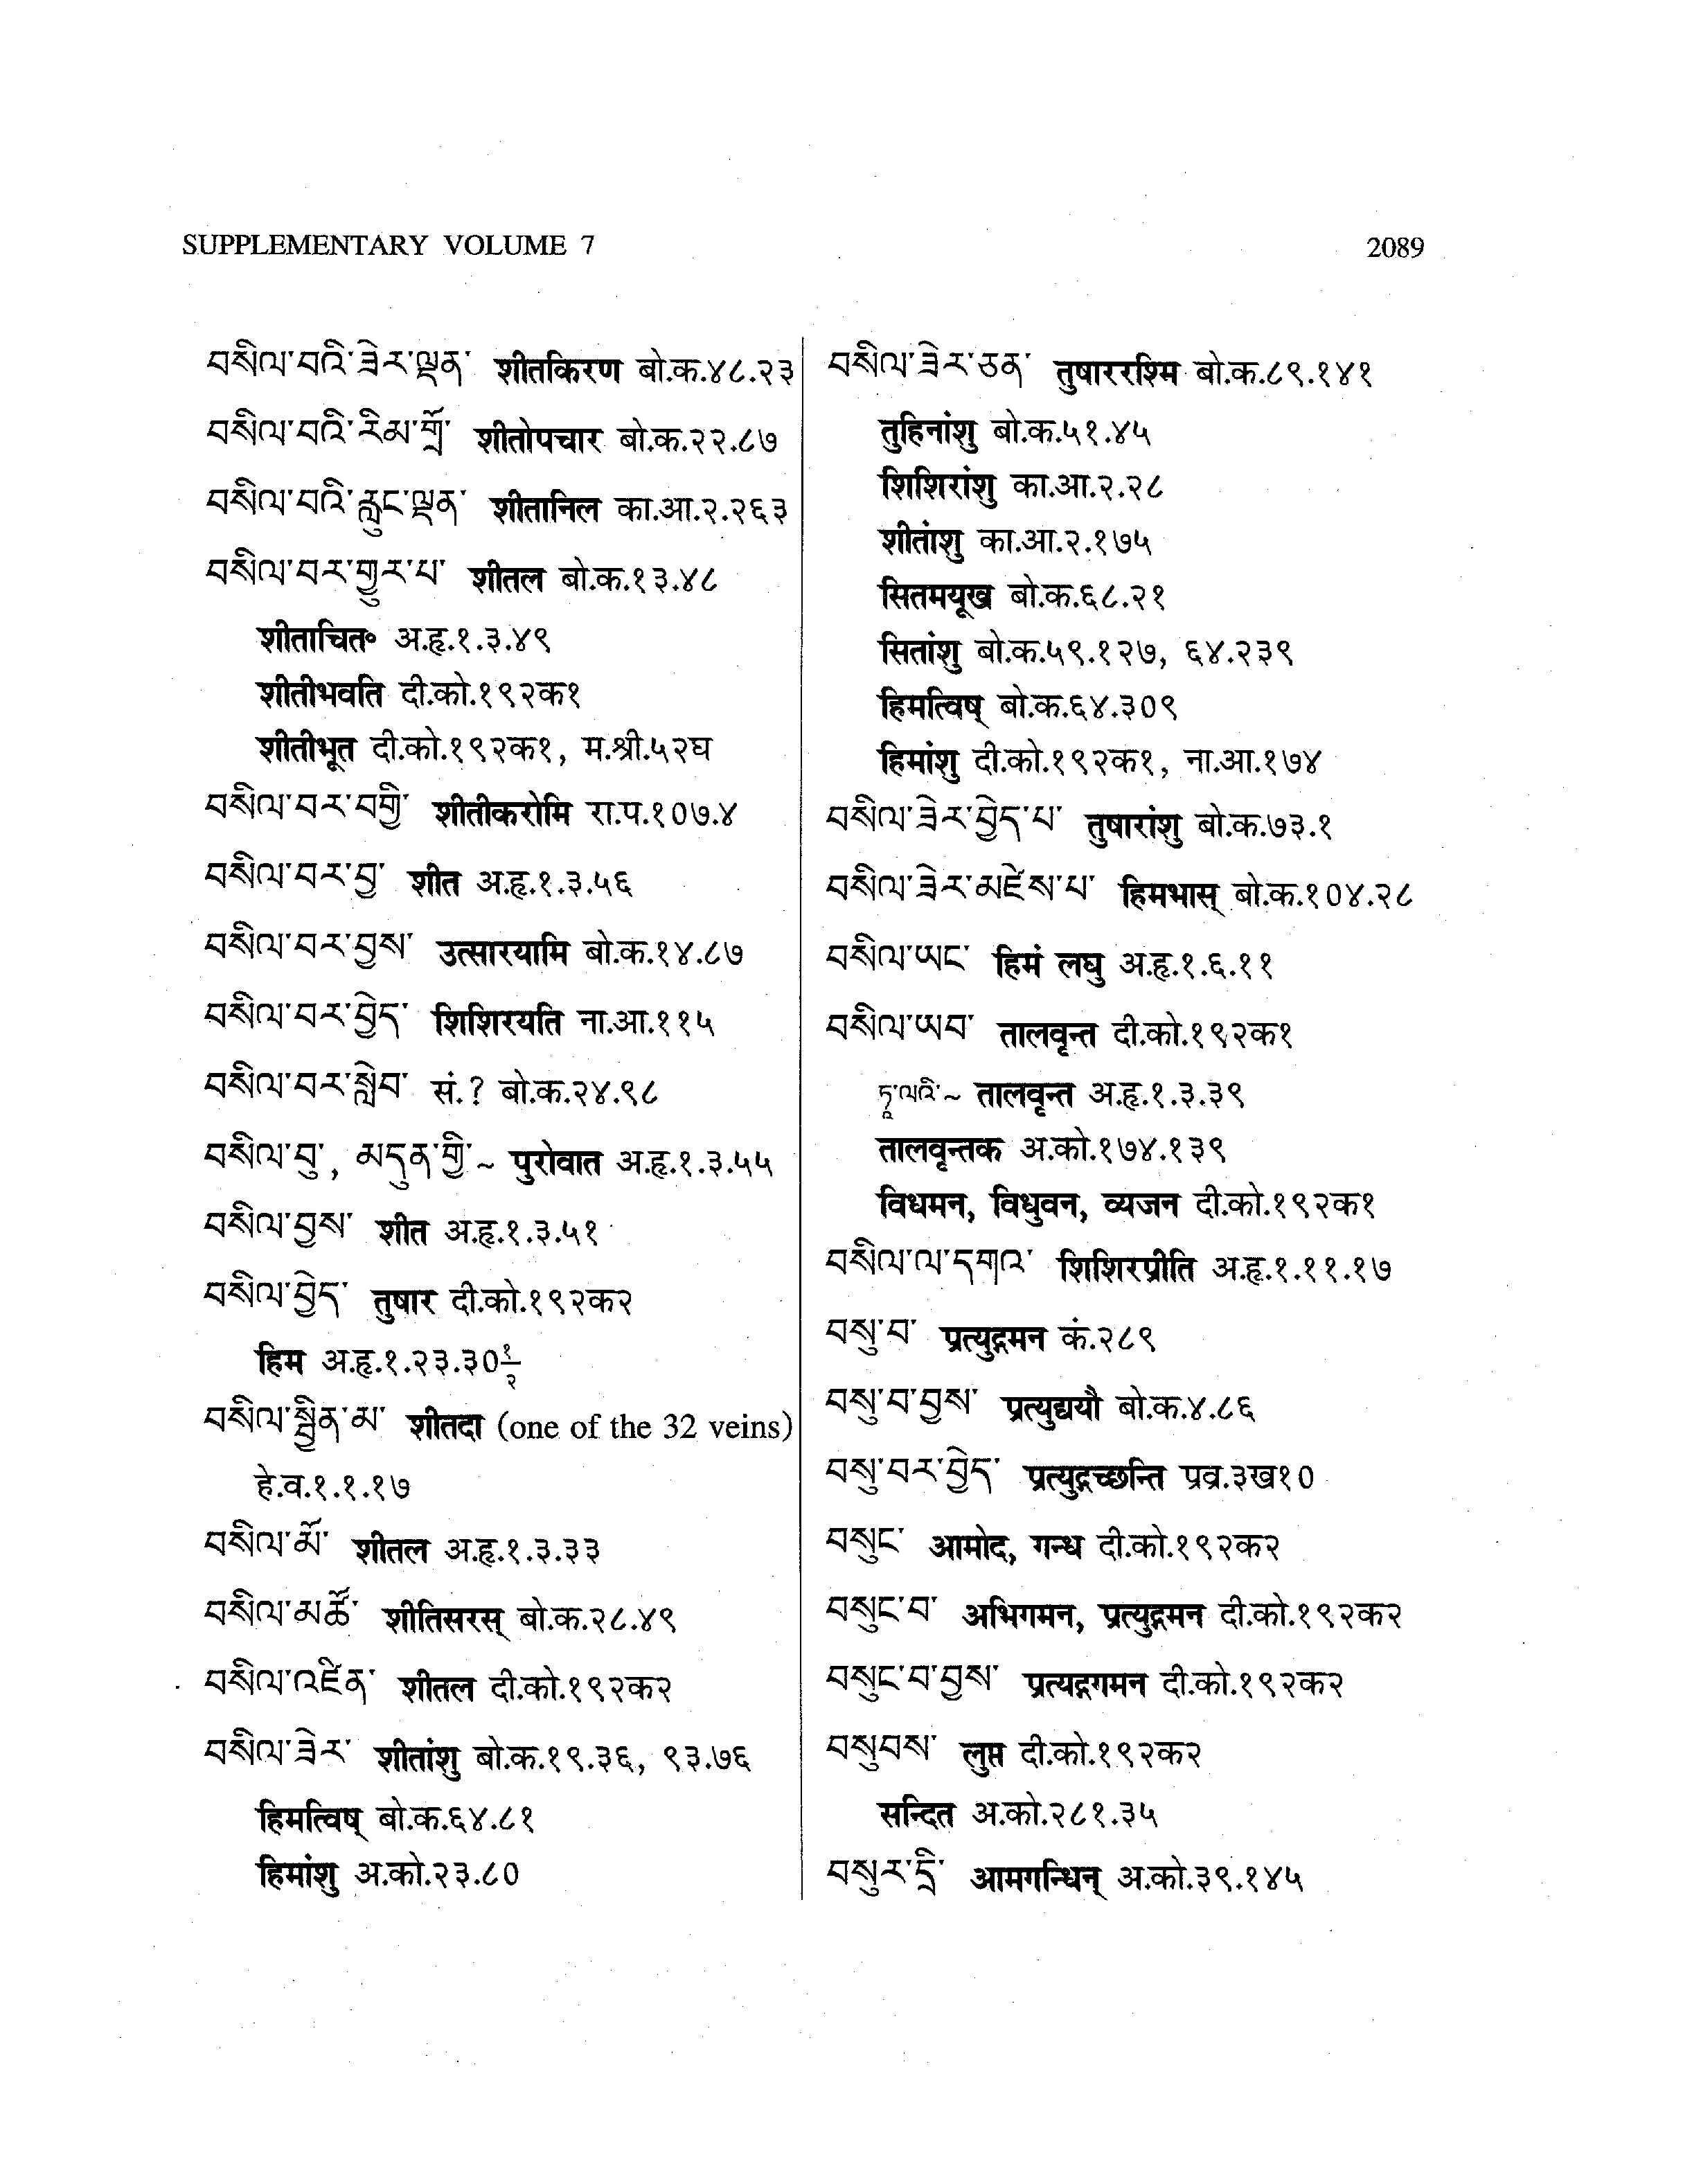 SUPPLEMENTARY VOLUME 7
2089
བསིལ་བའི་ཟེར་ལྡན་ शीतकिरण बो.क.४८.२३
བསིལ་བའི་རིམ་གྲོ་ शीतोपचार बो.क.२२.८७
བསིལ་བའི་རླུང་ལྡན་ शीतानिल का.आ.२.२६३
བསིལ་བར་གྱུར་པ་ शीतल बो.क.१३.४८
शीताचित० अ.हृ.१.३.४९
शीतीभवति दी.को.१९२क१
शीतीभूत दी.को.१९२क१, म.श्री.५२घ
བསིལ་བར་བགྱི་ शीतीकरोमि रा.प.१०७.४
བསིལ་བར་བྱ་ शीत अ.हृ.१.३.५६
བསིལ་བར་བྱས་ उत्सारयामि बो.क.१४.८७
བསིལ་བར་བྱེད་ शिशिरयति ना.आ.११५
བསིལ་བར་སླེབ་ सं.? बो.क.२४.९८
བསིལ་བུ་, མདུན་གྱི་~ पुरोवात अ.हृ.१.३.५५
བསིལ་བྱས་ शीत अ.हृ.१.३.५१
བསིལ་བྱེད་ तुषार दी.को.१९२क२
हिम अ.हृ.१.२३.३०१/२
བསིལ་སྦྱིན་མ་ शीतदा (one of the 32 veins)
हे.व.१.१.१७
བསིལ་མོ་ शीतल अ.हृ.१.३.३३
བསིལ་མཚོ་ शीतिसरस् बो.क.२८.४९
བསིལ་འཛིན་ शीतल दी.को.१९२क२
བསིལ་ཟེར་ शीतांशु बो.क.१९.३६, ९३.७६
हिमत्विष् बो.क.६४.८१
हिमांशु अ.को.२३.८०
བསིལ་ཟེར་ཅན་ तुषाररश्मि बो.क.८९.१४१
तुहिनांशु बो.क.५१.४५
शिशिरांशु का.आ.२.२८
शीतांशु का.आ.२.१७५
सितमयूख बो.क.६८.२१
सितांशु बो.क.५९.१२७, ६४.२३९
हिमत्विष् बो.क.६४.३०९
हिमांशु दी.को.१९२क१, ना.आ.१७४
བསིལ་ཟེར་བྱེད་པ་ तुषारांशु बो.क.७३.१
བསིལ་ཟེར་མཛེས་པ་ हिमभास् बो.क.१०४.२८
བསིལ་ཡང་ हिमं लघु अ.हृ.१.६.११
བསིལ་ཡབ་ तालवृन्त दी.को.१९२क१
ཏཱ་ལའི་~ तालवृन्त अ.हृ.१.३.३९
तालवृन्तक अ.को.१७४.१३९
विधमन, विधुवन, व्यजन दी.को.१९२क१
བསིལ་ལ་དགའ་ शिशिरप्रीति अ.हृ.१.११.१७
བསུ་བ་ प्रत्युद्गमन कं.२८९
བསུ་བ་བྱས་ प्रत्युद्ययौ बो.क.४.८६
བསུ་བར་བྱེད་ प्रत्युद्गच्छन्ति प्रव्र.३ख१०
བསུང་ आमोद, गन्ध दी.को.१९२क२
བསུང་བ་ अभिगमन, प्रत्युद्गमन दी.को.१९२क२
བསུང་བ་བྱས་ प्रत्यद्गगमन दी.को.१९२क२
བསུབས་ लुप्त दी.को.१९२क२
सन्दित अ.को.२८१.३५
བསུར་དྲི་ आमगन्धिन् अ.को.३९.१४५